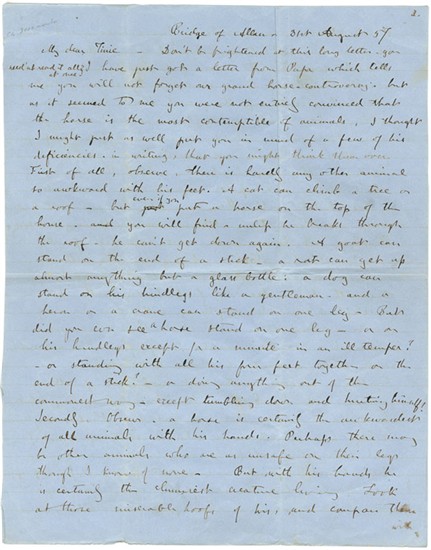 2.
Bridge of Allan - 31st August 57
My dear - Don't be frightened at this long letter - you
need not read it all at once I have just got a letter from Papa which tells
me you will not forget our grand horse-controversy - but
as it seemed to me you were not entirely convinced that
the horse is the most contemptible of animals, I thought
I might just as well put you in mind of a few of his
deficiencies - in writing, that you might think them over.
First of all, observe, there is hardly any other animal
so awkward with his feet. A cat can climb a tree or
a roof - but even if you put a horse on the top of the
house - and you will find - unless he breaks through
the roof - he can't get down again. A goat can
stand on the end of a stick - a rat can get up
almost anything but a glass bottle: a dog can
stand on his hindlegs like a gentleman - and a
heron or a crane can stand on one leg - But
did you ever see a horse stand on one leg - or on
his hindlegs except for a minute - in an ill temper?
- or standing with all his four feet together on the
end of a stick? - or doing anything out of the
commonest way - except tumbling down and hurting himself?
Secondly. Observe - a horse is certainly the awkwardest
of all animals with his hands. Perhaps there may
be other animals who are as unsafe on their legs
though I know of none - But with his hands he
is certainly the clumsiest creature living Look
at those miserable hoofs of his, and compare them
with